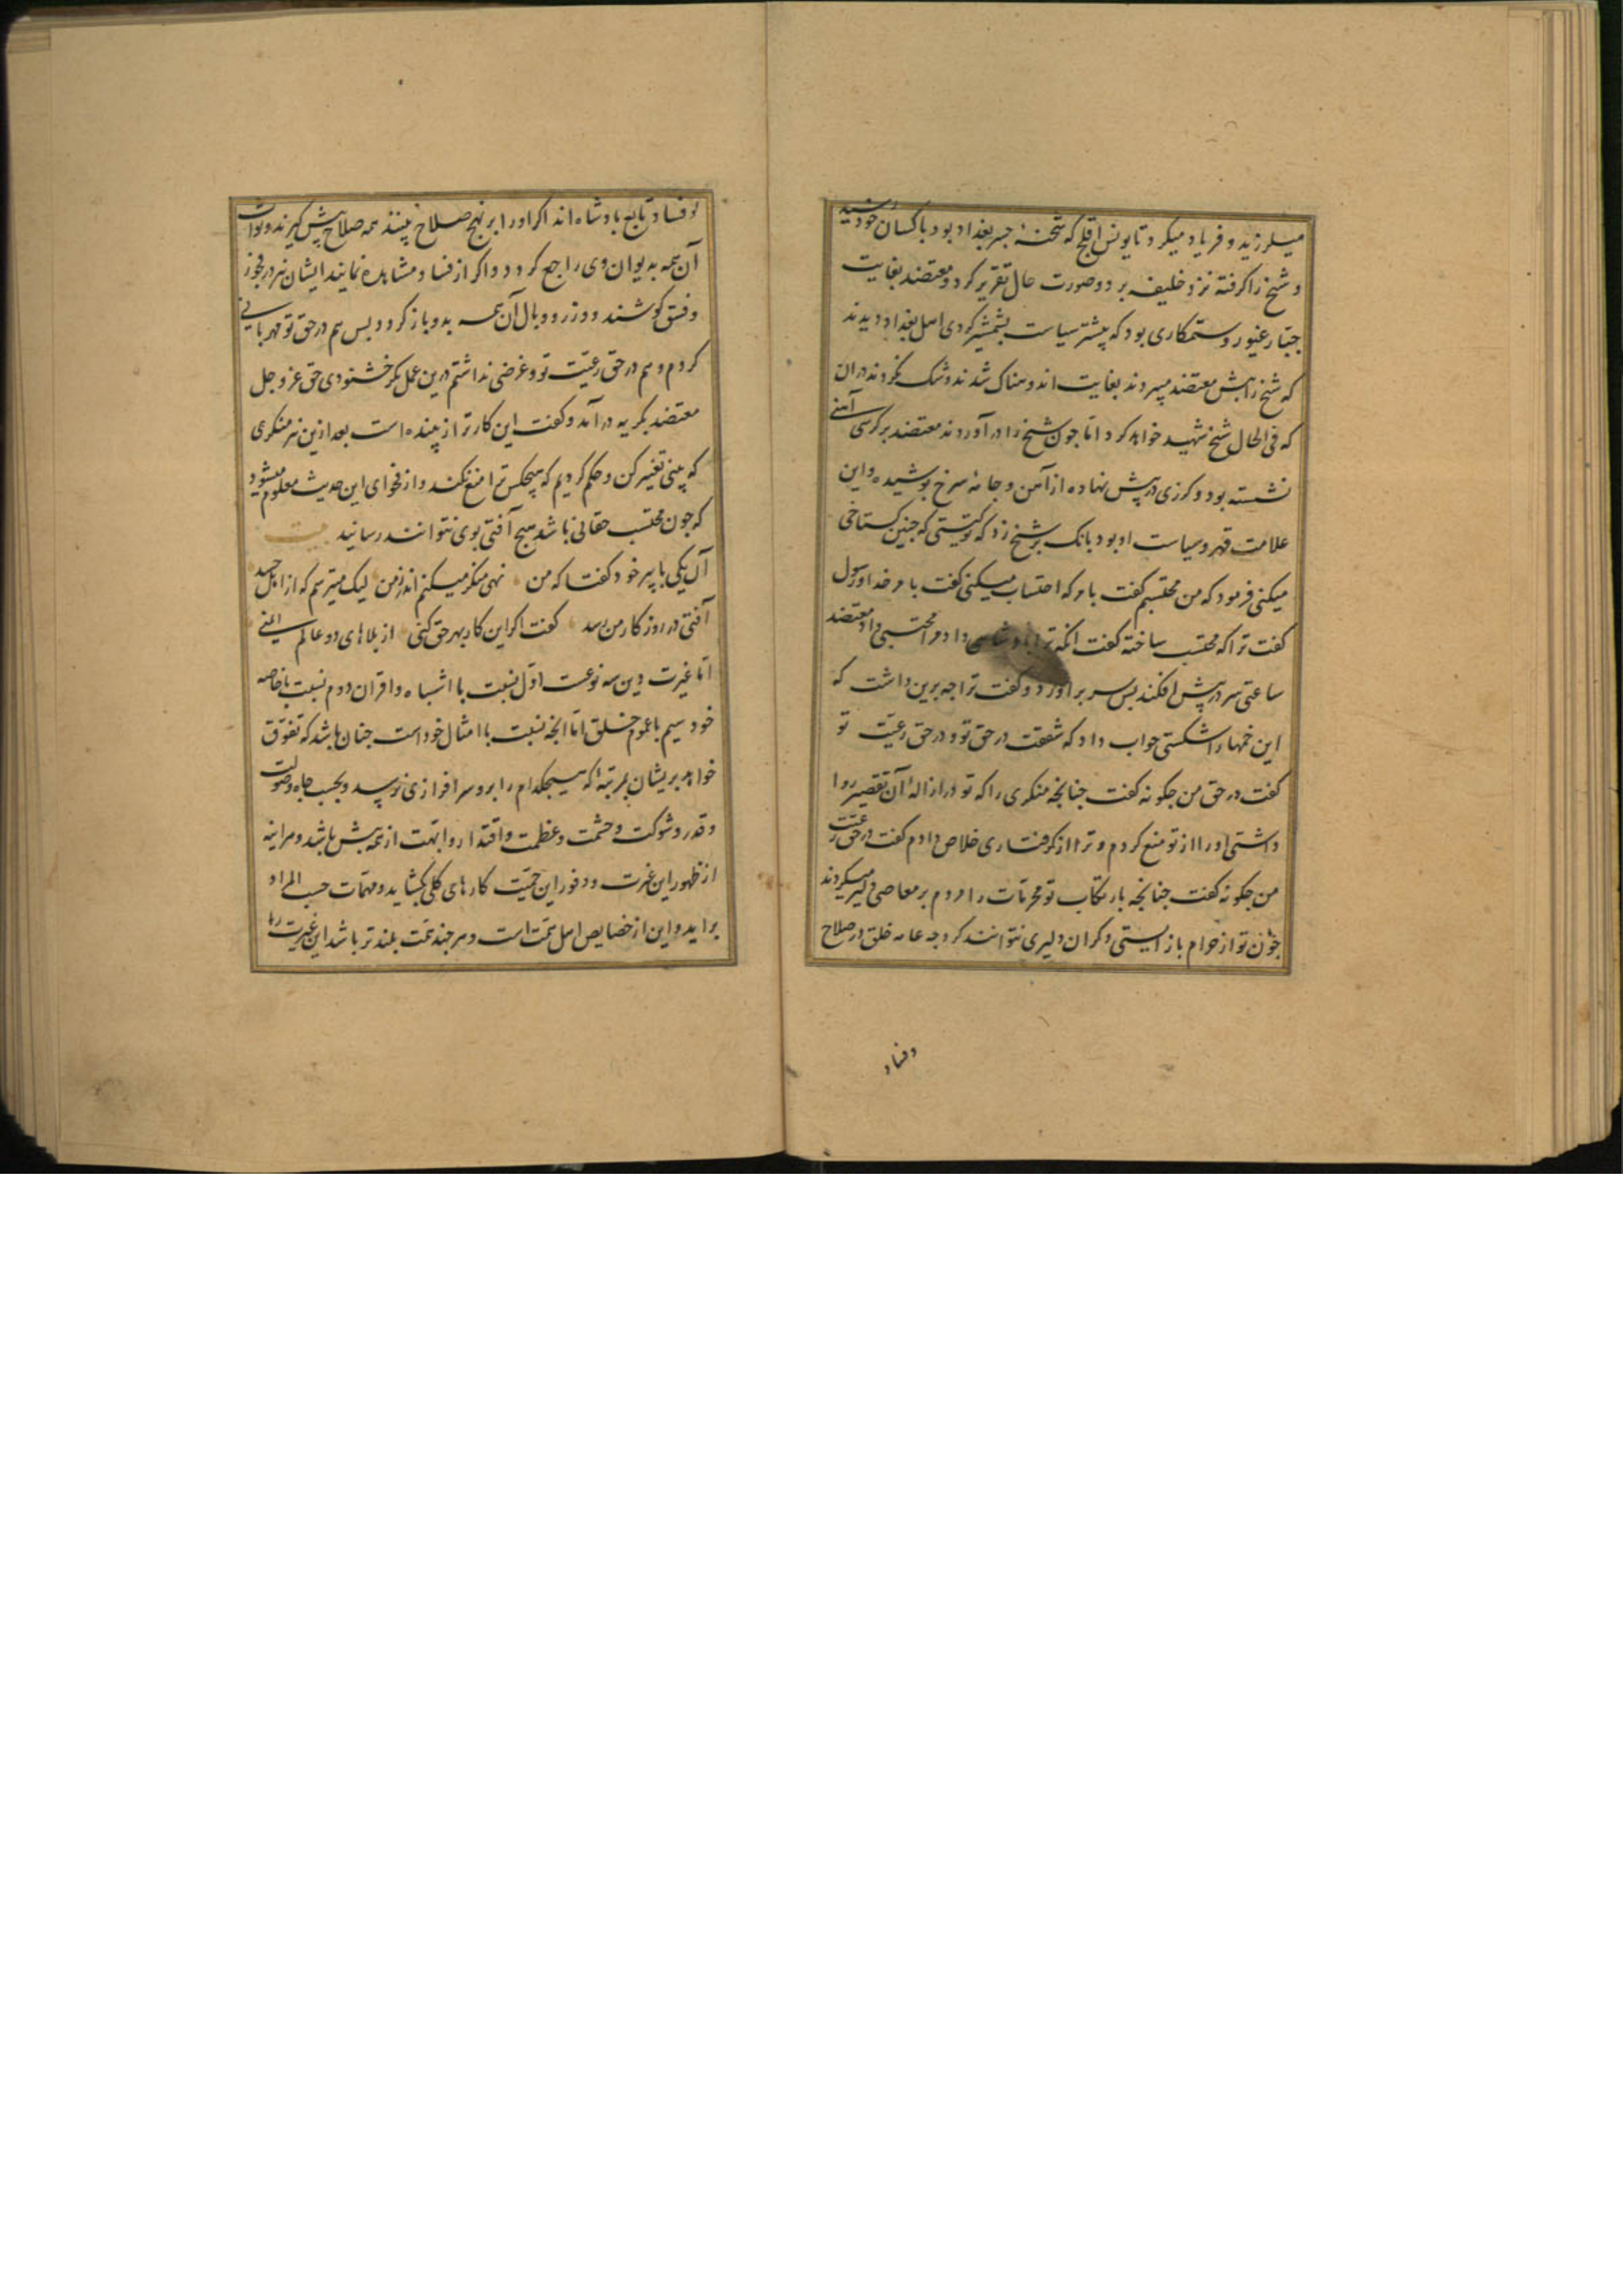 میلرزید و فریاد میکرد تا یونس افلح که شحنهٔ جسر بغداد بود با کسان خود رسید
و شیخ را کرفته نزد خلیفه برد و صورت حال تقریر کرد و معتضد بغایت
جبّار غیور و ستمکاری بود که پیشتر سیاست بشمشیر کردی اهل بغداد دیدند
که شیخ را پیش معتضد میبردند بغایت اندوهناک شدند و شک نکردند دران
که فی الحال شیخ شهید خواهد کرد امّا چون شیخ را درآوردند معتضد بر کرسی آهنی
نشسته بود و کرزی در پیش نهاده از آهن و جامهٔ سرخ پوشیده و این
علامت قهر و سیاست او بود بانک بر شیخ زد که تو کیستی که چنین کستاخی
میکنی فرمود که من محتسبم کفت بامر که احتساب میکنی کفت بامر خدا و رسول
کفت ترا که محتسب ساخته کفت انکه ترا پادشاهی داد مرا محتسبی داد معتضد
ساعتی سر در پیش افکند پس سر برآورد و کفت ترا چه برین داشت که
این خمها را شکستی جواب داد که شفقت در حق تو و در حق رعیّت تو
کفت در حق من چکونه کفت چنانچه منکری را که تو در ازالهٔ آن تقصیر روا
داشتی او را از تو منع کردم و ترا از کرفتاری خلاص دادم کفت در حق رعیّت
من چکونه کفت چنانچه بارتکاب تو محرمات را مردم بر معاصی دلیر میکردند
چون تو از حرام باز ایستی دکران دلیری نتوانند کرد چه عامه خلق در صلاح
و فساد
و فساد تابع پادشاه اند اکر او را بر نهج صلاح بینند همه صلاح پیش کیرند و ثواب
آن همه بدیوان وی راجع کردد و اکر از فساد مشاهده نمایند ایشان نیز در فجور
و فسق کوشند و وزر و وبال آن همه بدو باز کردد پس هم در حق تو مهربانی
کردم و هم در حق رعیّت تو و غرضی نداشتم درین عمل مکر خشنودی حق عز و جل
معتضد بکریه درآمد و کفت این کار ترا زیبنده است بعد ازین هر منکری
که بینی تغییر کن و حکم کردیم که هیچکس ترا منع نکند و از فحوای این حدیث معلوم میشود
که چون محتسب حقانی باشد هیچ آفتی بوی نتوانند رسانید بیت
آن یکی با پیر خود کفتا که من نهی منکر میکنم اندر زمن لیک میترسم که از اهل حسد
آفتی در روزکار من رسد کفت اکر این کار بهر حق کنی از بلاهای دو عالم ایمنی
امّا غیرت دین سه نوعست اوّل نسبت با اشباه و اقران دوم نسبت با خاصه
خود سیم با عموم خلق امّا انچه نسبت با امثال خود است چنان باشد که تفوّق
خواهد بریشان بمرتبهٔ که هیچکدام را برو سرافرازی نرسد و بحسب جاه و صولت
و قدر و شوکت و حشمت و عظمت و اقتدار و ابهّت از همه بیش باشد و هر اینه
از ظهور این غیرت و وفور این حمیّت کارهای کلی بکشاید و مهمّات حسب المراد
براید و این از خصایص اهل همّت است و هر چند همّت بلندتر باشد این غیرت را